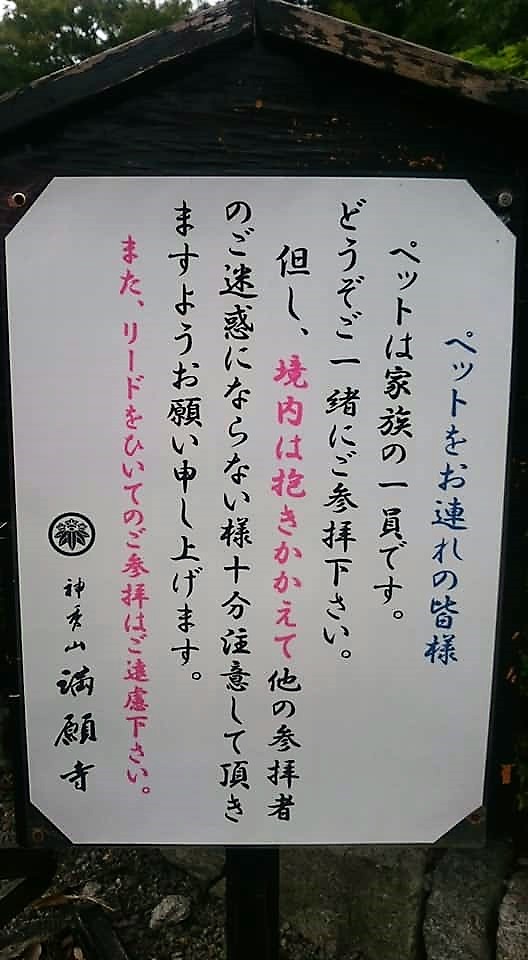 ペットをお連れの皆様
ペットは家族の一員です。
どうぞご一緒にご参拝下さい。
但し、境内は抱きかかえて他の参拝者
のご迷惑にならない様十分注意して頂き
ますようお願い申し上げます。
また、リードをひいてのご参拝はご遠慮下さい。
神秀山 満願寺